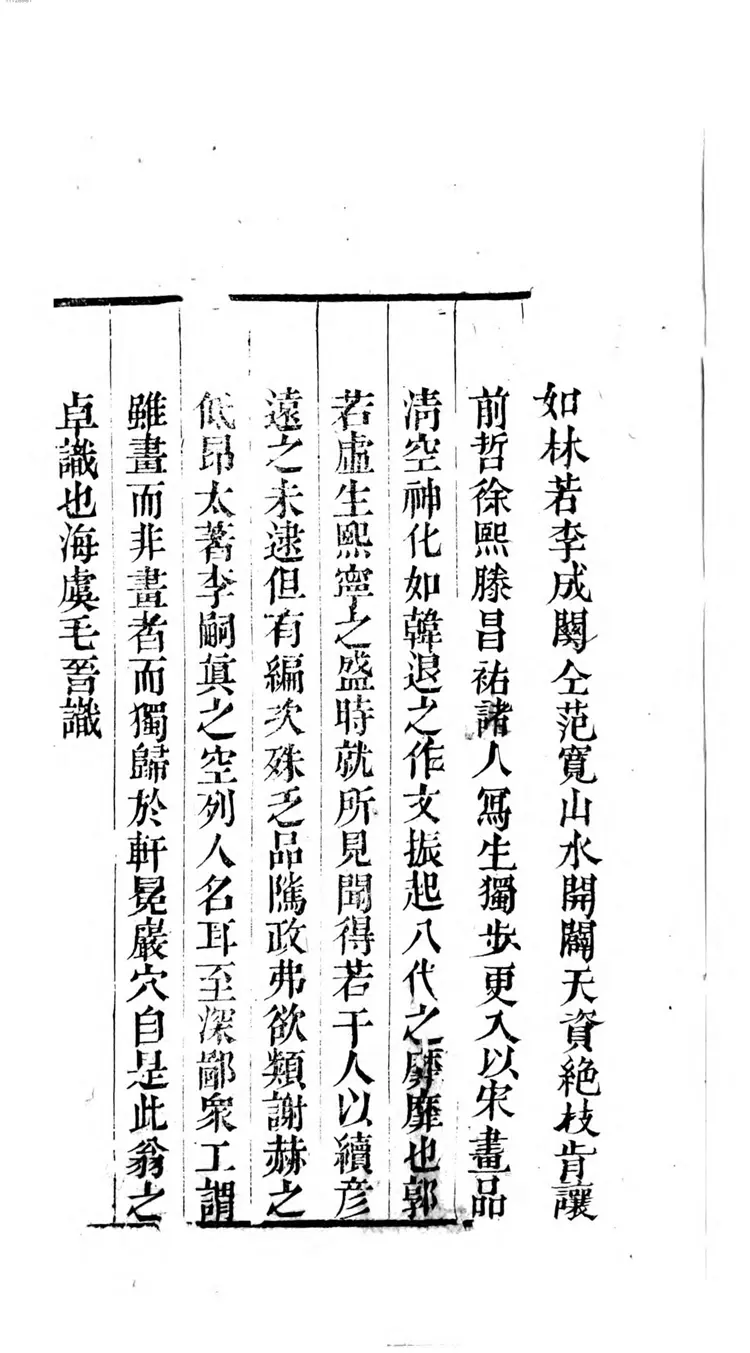 如林若李成關仝范寬山水開闢天資絶枝肯讓
前哲徐熙滕昌祐諸人寫生獨步更入以宋畫品
淸空神化如韓退之作文振起八代之靡靡也郭
若虛生熙寧之盛時就所見聞得若干人以續彦
遠之未逮但有編次殊乏品隲政弗欲類謝赫之
低昂太著李嗣真之空列人名耳至深鄙衆工謂
雖畫而非畫者而獨歸於軒冕巖穴自是此翁之
卓識也海虞毛晉識